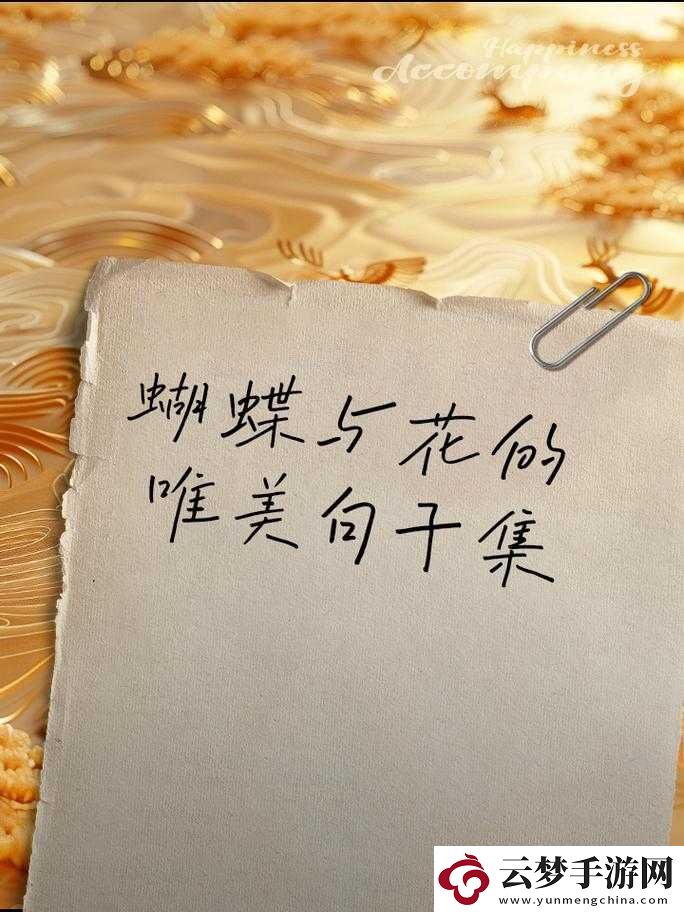 Happiness
Accompany
蝴蝶与花的
唯美句子集
云梦手游网
www.yunmengchina.com